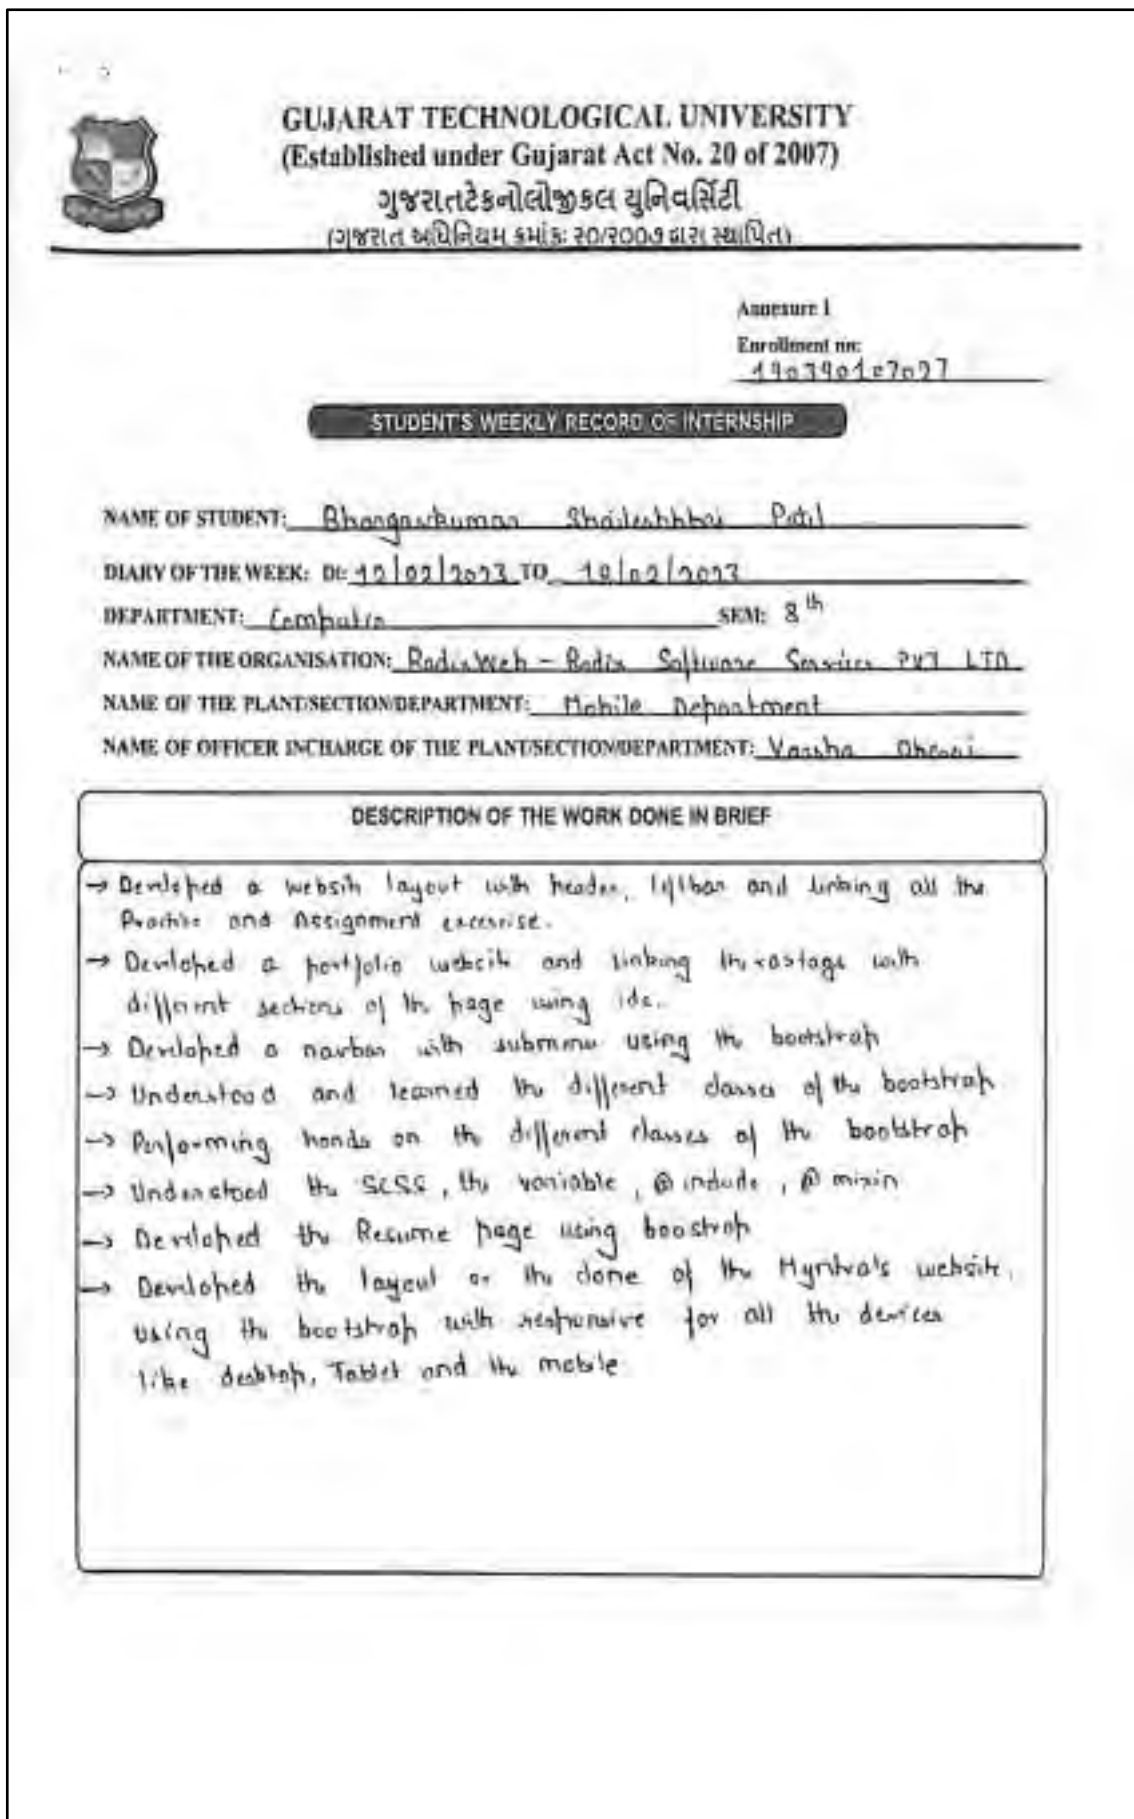 GUJARAT TECHNOLOGICAL UNIVERSITY
(Established under Gujarat Act No. 20 of 2007)
ગુજરાતટેકનોલોજીકલ યુનિવર્સિટી
(ગુજરાત અધિનિયમ ક્રમાંક: ૨૦/૨૦૦૭ દ્વારા સ્થાપિત)
Annexure 1
Enrollment no:
190390107027
STUDENT'S WEEKLY RECORD OF INTERNSHIP
NAME OF STUDENT: Bhargavkumar Shaileshbhai Patil
DIARY OF THE WEEK: Dt: 12/02/2023 TO 18/02/2023
DEPARTMENT: Computer SEM: 8th
NAME OF THE ORGANISATION: RadixWeb - Radix Software Services PVT LTD
NAME OF THE PLANT/SECTION/DEPARTMENT: Mobile Department
NAME OF OFFICER INCHARGE OF THE PLANT/SECTION/DEPARTMENT: Varsha
DESCRIPTION OF THE WORK DONE IN BRIEF
→ Developed a website layout with header, leftbar and linking all the
Practise and Assignment excersise.
→ Developed a portfolio website and linking with
different sections of the page using ids.
→ Developed a navbar with submenu using the bootstrap
→ Understood and learned the different classes of the bootstrap
→ Performing hands on the different classes of the bootstrap
→ Understood the SCSS, the variable, @include, @mixin
→ Developed the Resume page using boostrap
→ Developed the layout or the clone of the Myntra's website,
using the bootstrap with responsive for all the devices
like desktop, Tablet and the mobile